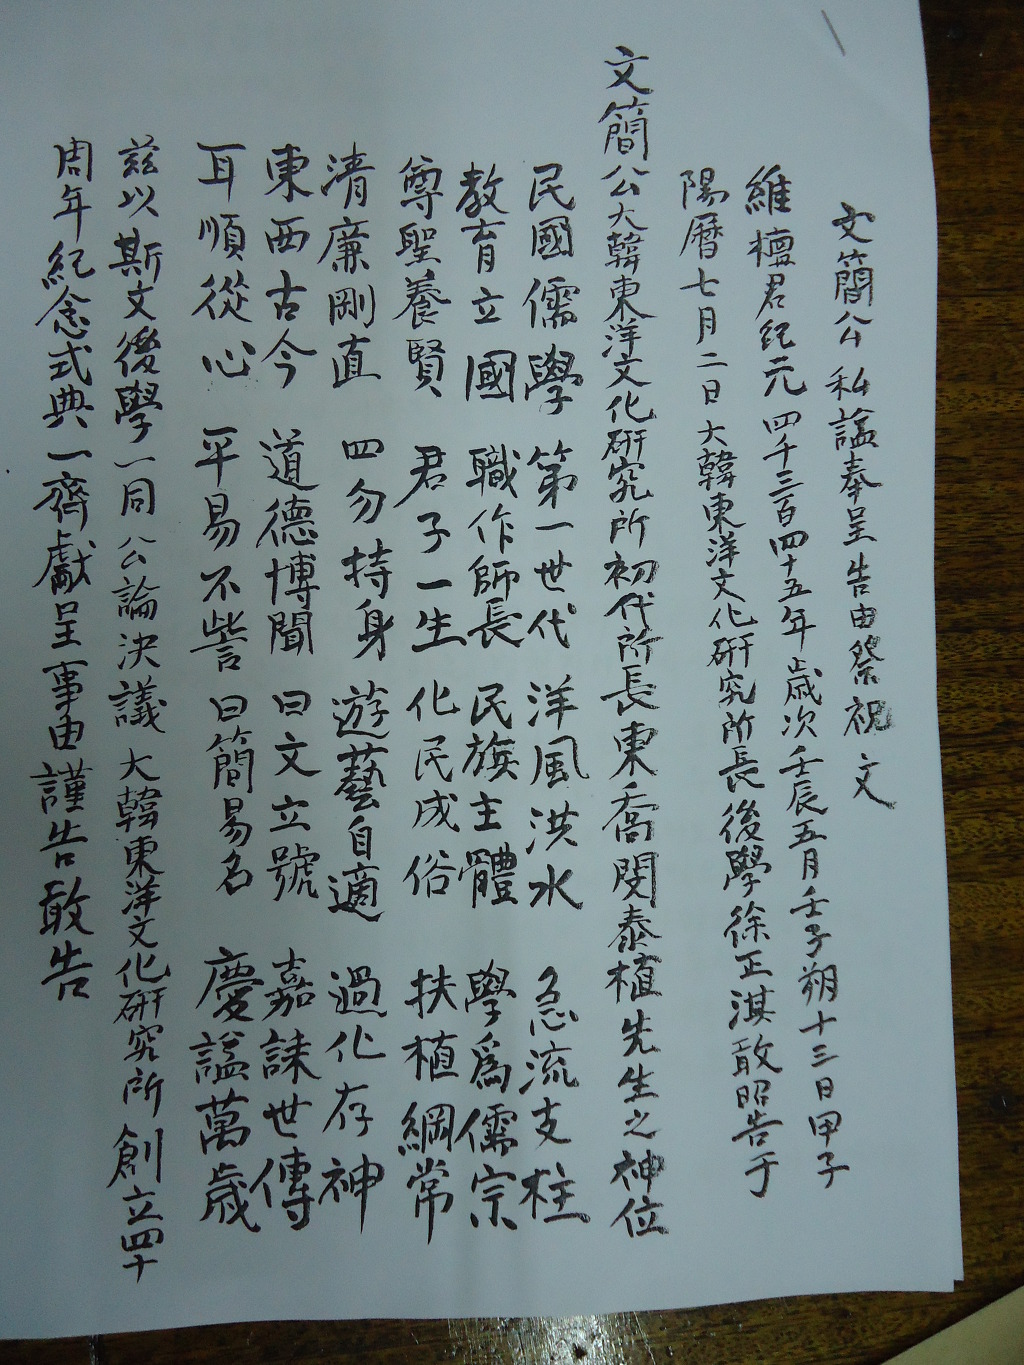 文簡公 私諡奉呈告由祭祝文
維檀君紀元四千三百四十五年歲次壬辰五月壬子朔十三日甲子
陽曆七月二日大韓東洋文化硏究所長後學徐正淇敢昭告于
文簡公大韓東洋文化硏究所初代所長東喬閔泰植先生之神位
民國儒學 第一世代 洋風洪水 急流支柱
教育立國 職作師長 民族主體 學爲儒宗
尊聖養賢 君子一生 化民成俗 扶植綱常
清廉剛直 四勿持身 遊藝自適 過化存神
東西古今 道德博聞 曰文立號 嘉誄世傳
耳順從心 平易不訾 曰簡易名 慶諡萬歲
玆以斯文後學一同公論決議大韓東洋文化硏究所創立四十
周年紀念式典一齊獻呈事由謹告敢告